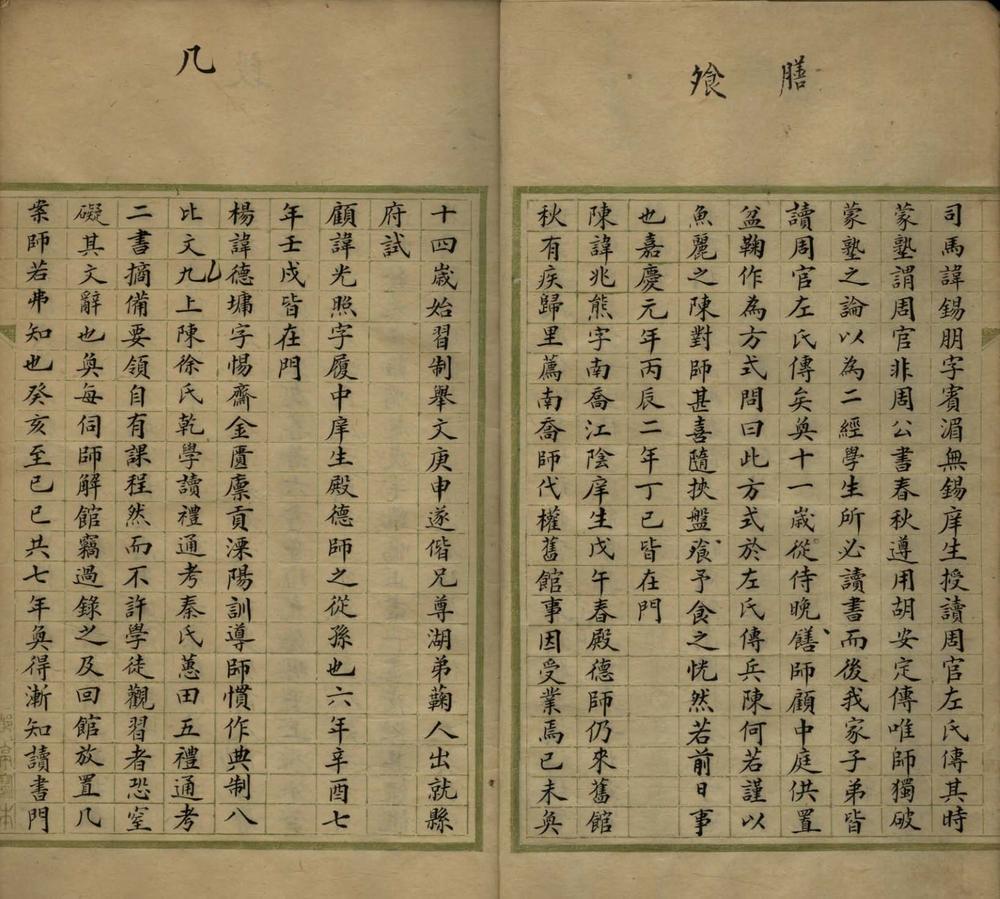 膳
飧
司馬諱錫朋字賓湄無錫庠生授讀周官左氏傳其時
蒙塾謂周官非周公書春秋遵用胡安定傳唯師獨破
蒙塾之論以為二經學生所必讀書而後我家子弟皆
讀周官左氏傳矣奐十一歲從侍晚饍師顧中庭供置
盆鞠作為方式問曰此方式於左氏傳兵陳何若謹以
魚麗之陳對師甚喜隨挾盤飱予食之恍然若前日事
也嘉慶元年丙辰二年丁巳皆在門
陳諱兆熊字南喬江陰庠生戊午春殿德師仍來舊館
秋有疾歸里薦南喬師代權舊館事因受業焉己未奐
几
十四歲始習制舉文庚申遂偕兄尊湖弟蘜人出就縣
府試
顧諱光照字履中庠生殿德師之從孫也六年辛酉七
年壬戌皆在門
楊諱德墉字惕齋金匱廩貢溧陽訓導師慣作典制八
比文九上陳徐氏乾學讀禮通考秦氏蕙田五禮通考
二書摘備要領自有課程然而不許學徒觀習者恐窒
礙其文辭也奐每伺師解館竊過錄之及回館放置几
案師若弗知也癸亥至己巳共七年奐得漸知讀書門